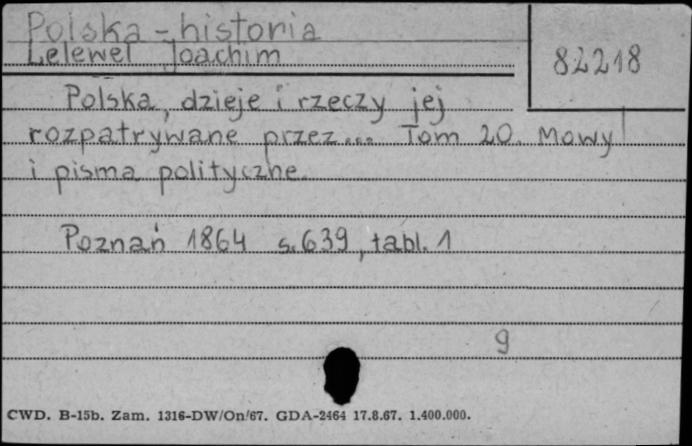 Polska - historia
Lelewel Joachim
82218
Polska, dzieje i rzeczy jej
rozpatrywane przez... Tom 20. Mowy
i pisma polityczne.
Poznań 1864 s. 639, tabl. 1
9
CWD. B-15b. Zam. 1316-DW/On/67. GDA-2464 17.8.67. 1.400.000.